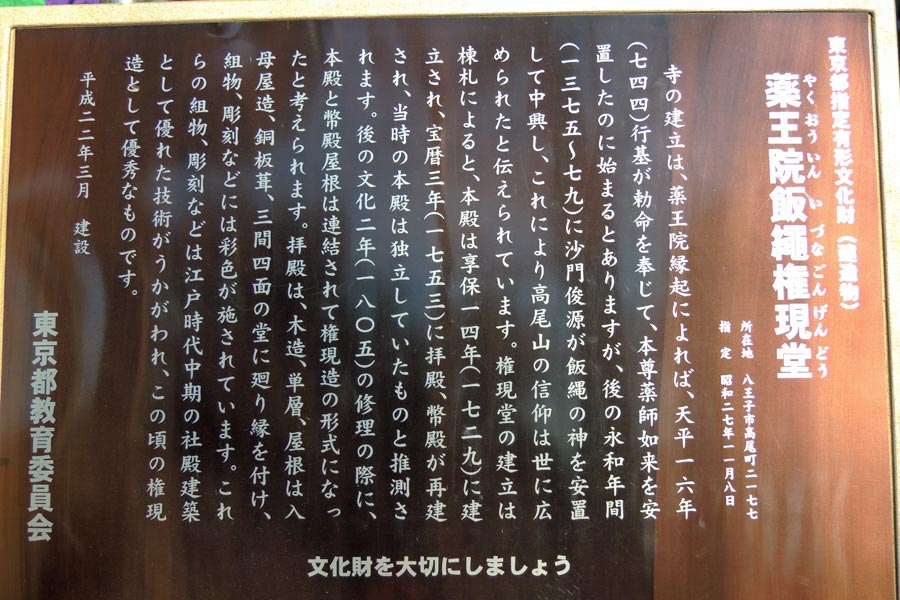 東京都指定有形文化財(建造物)
やくおういんいづなごんげんどう
薬王院飯縄権現堂
所在地 八王子市高尾町二一七七
指定 昭和二七年一一月八日
寺の建立は、薬王院縁起によれば、天平一六年
(七四四)行基が勅命を奉じて、本尊薬師如来を安
置したのに始まるとありますが、後の永和年間
(一三七五～七九)に沙門俊源が飯縄の神を安置
して中興し、これにより高尾山の信仰は世に広
められたと伝えられています。権現堂の建立は
棟札によると、本殿は享保一四年(一七二九)に建
立され、宝暦三年(一七五三)に拝殿、幣殿が再建
され、当時の本殿は独立していたものと推測さ
れます。後の文化二年(一八〇五)の修理の際に、
本殿と幣殿屋根は連結されて権現造の形式になっ
たと考えられます。拝殿は、木造、単層、屋根は入
母屋造、銅板葺、三間四面の堂に廻り縁を付け、
組物、彫刻などには彩色が施されています。これ
らの組物、彫刻などは江戸時代中期の社殿建築
として優れた技術がうかがわれ、この頃の権現
造として優秀なものです。
平成二二年三月 建設
東京都教育委員会
文化財を大切にしましょう